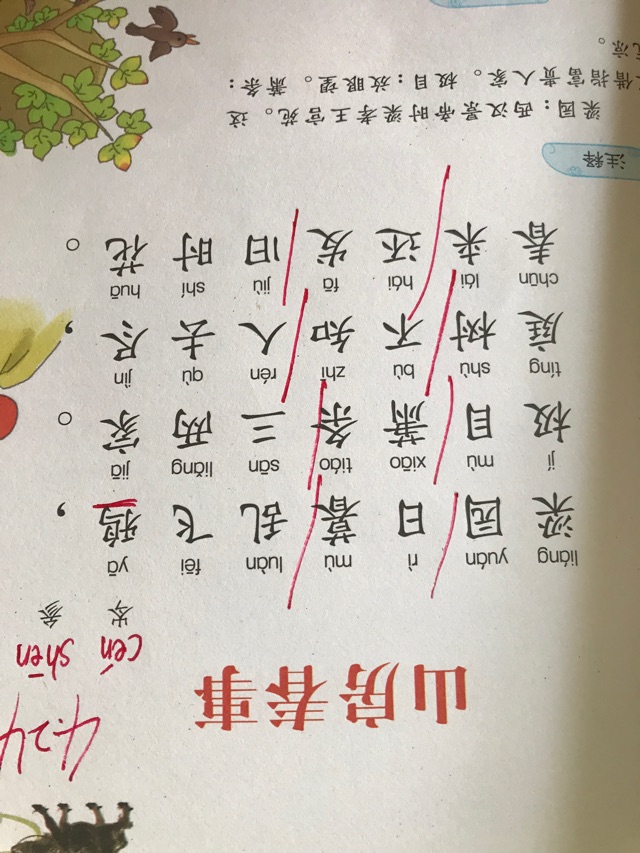 4.24
山房春事
cén shēn
岑 参
liáng yuán rì mù luàn fēi yā
梁园日暮乱飞鸦，
jí mù xiāo tiáo sān liǎng jiā
极目萧条三两家。
tíng shù bù zhī rén qù jìn
庭树不知人去尽，
chūn lái hái fā jiù shí huā
春来还发旧时花。
注释
梁园：西汉景帝时梁孝王宫苑。这
借指富贵人家。 极目：放眼望。 萧条：
凉。